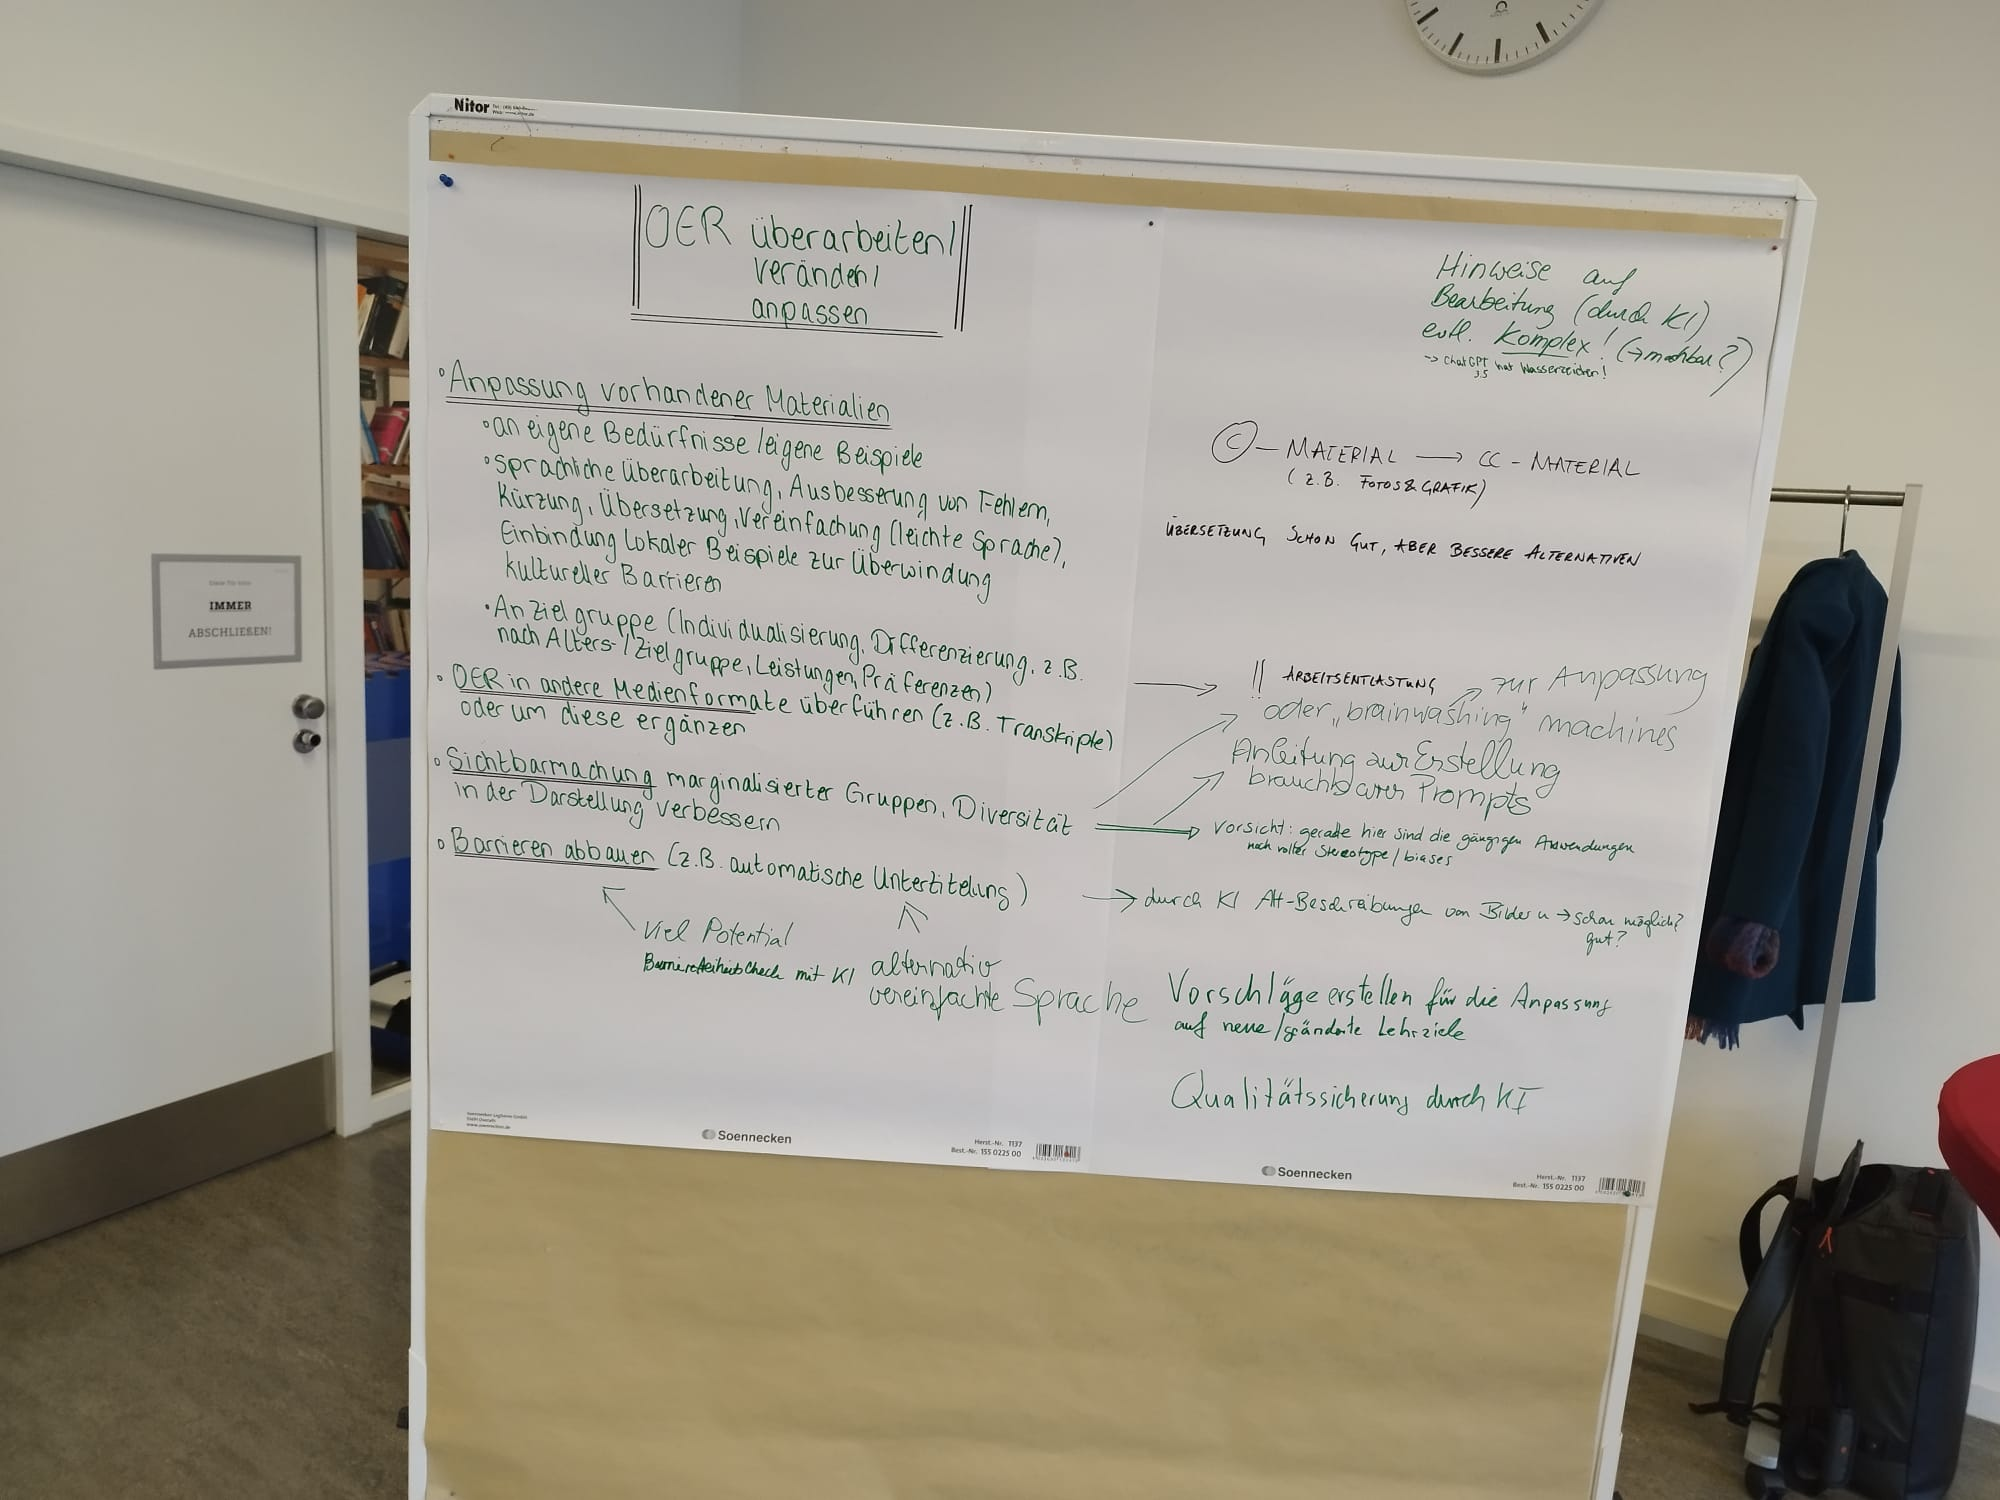 Nitor
OER überarbeiten/
verändern/
anpassen
Anpassung vorhandener Materialien
an eigene Bedürfnisse/eigene Beispiele
sprachliche Überarbeitung, Ausbesserung von Fehlern,
Kürzung, Übersetzung, Vereinfachung (leichte Sprache),
Einbindung lokaler Beispiele zur Überwindung
kultureller Barrieren
An Zielgruppe (Individualisierung, Differenzierung, z.B.
nach Alters-/Zielgruppe, Leistungen, Präferenzen)
OER in andere Medienformate überführen (z.B. Transkripte)
oder um diese ergänzen
Sichtbarmachung marginalisierter Gruppen, Diversität
in der Darstellung verbessern
Barrieren abbauen (z.B. automatische Untertitelung)
Viel Potential
Barrierefreiheits Check mit KI
alternativ
vereinfachte Sprache
Hinweise auf
Bearbeitung (durch KI)
evtl. Komplex! (→ machbar?)
→ ChatGPT hat Wasserzeichen!
3.5
© – MATERIAL → CC – MATERIAL
(z.B. FOTOS & GRAFIK)
ÜBERSETZUNG SCHON GUT, ABER BESSERE ALTERNATIVEN
!! ARBEITSENTLASTUNG → zur Anpassung
oder „brainwashing" machines
Anleitung zur Erstellung
brauchbarer Prompts
Vorsicht: gerade hier sind die gängigen Anwendungen
noch voller Stereotype/biases
→ durch KI Alt-Beschreibungen von Bildern → schon möglich?
gut?
Vorschläge erstellen für die Anpassung
auf neue/geänderte Lehrziele
Qualitätssicherung durch KI
IMMER
ABSCHLIEßEN!
Soennecken Logiserve GmbH
51491 Overath
www.soennecken.de
Soennecken
Herst.-Nr. 1137
Best.-Nr. 155 0225 00
Soennecken
Herst.-Nr. 1137
Best.-Nr. 155 0225 00